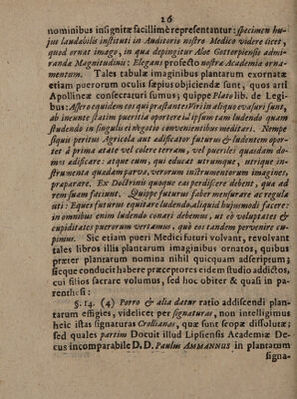 16
nominibus insignitæ facillimè repræsentantur: specimen hu-
jus laudabilis instituti in Auditorio nostro Medico videre licet,
quod ornat imago, in qua depingitur Aloe Gottorpiensis admi-
randa Magnitudinis: Elegans profecto nostra Academia orna-
mentum. Tales tabulæ imaginibus plantarum exornatæ
etiam puerorum oculis sæpius objiciendæ sunt, quos arti
Apollineæ consecraturi sumus; quippe Plato lib. de Legi-
bus: Assero equidem eos qui præstantes Viri in aliquo evasuri sunt,
ab ineunte statim pueritia oportere id ipsum tam ludendo quam
studendo in singulis ei negotio convenientibus meditari. Nempe
siquis peritus Agricola aut ædificator futurus est ludentem opor-
tet à prima ætate vel colere terram, vel pueriles quasdam do-
mos ædificare: atque eum, qui educat utrumque, utrique in-
strumenta quædam parva, verorum instrumentorum imagines,
præparare. Ex Doctrinis quoque eas perdiscere debent, qua ad
rem suam faciunt. Quippe futurus faber mensurare ac regula
uti: Eques futurus equitare ludendo, aliquid hujusmodi facere:
in omnibus enim ludendo conari debemus, ut eò voluptates &
cupiditates puerorum vertamus, quò eos tandem pervenire cu-
pimus. Sic etiam pueri Medici futuri volvant, revolvant
tales libros illis plantarum imaginibus ornatos, quibus
præter plantarum nomina nihil quicquam adscriptum;
sicque conducit habere præceptores eidem studio addictos,
cui filios sacrare volumus, sed hoc obiter & quasi in pa-
renthesi:
§. 14. (4) Porro & alia datur ratio addiscendi plan-
tarum effigies, videlicet per signaturas, non intelligimus
heic istas signaturas Crollianas, quæ sunt scopæ dissolutæ;
sed quales partim Docuit illud Lipsiensis Academiæ De-
cus incomparabile D. D. Paulus AMMANNUS in plantarum
signa-